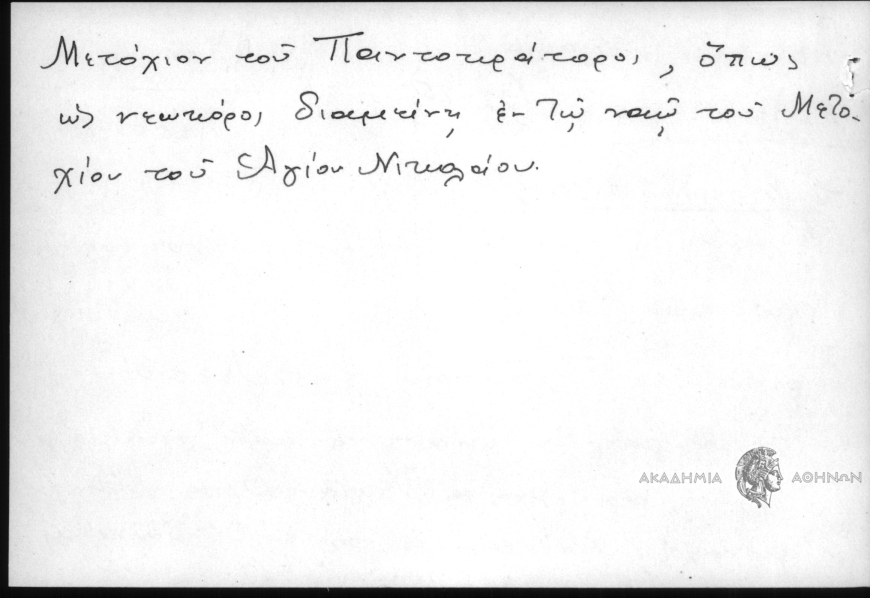 Μετόχιον τοῦ Παντοκράτορος, ὅπως
ὡς νεωκόρος διαμείνῃ ἐν τῷ ναῷ τοῦ Μετο-
χίου τοῦ Ἁγίου Νικολάου.
ΑΚΑΔΗΜΙΑ ΑΘΗΝΩΝ